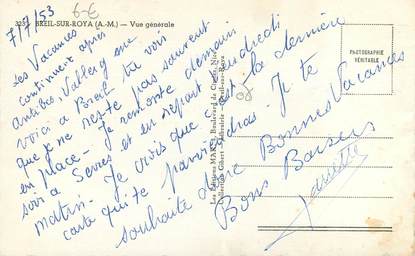 323 BREIL-SUR-ROYA (A.-M.) — Vue générale
6-€
7/7/53
Les Vacances
continuent après
Antibes, Valberg me
voici à Breil tu vois
que je ne reste pas souvent
en place. Je remonte demain
soir à Sèvres et en repart Vendredi
matin. Je crois que c'est la dernière
carte qui te parviendras. Je te
souhaite donc Bonnes Vacances
Bons Baisers
Janette
PHOTOGRAPHIE
VÉRITABLE
Les Editions MAR, Boulevard de Cimiez, Nice
Collection Gibert Breil-sur-Roya